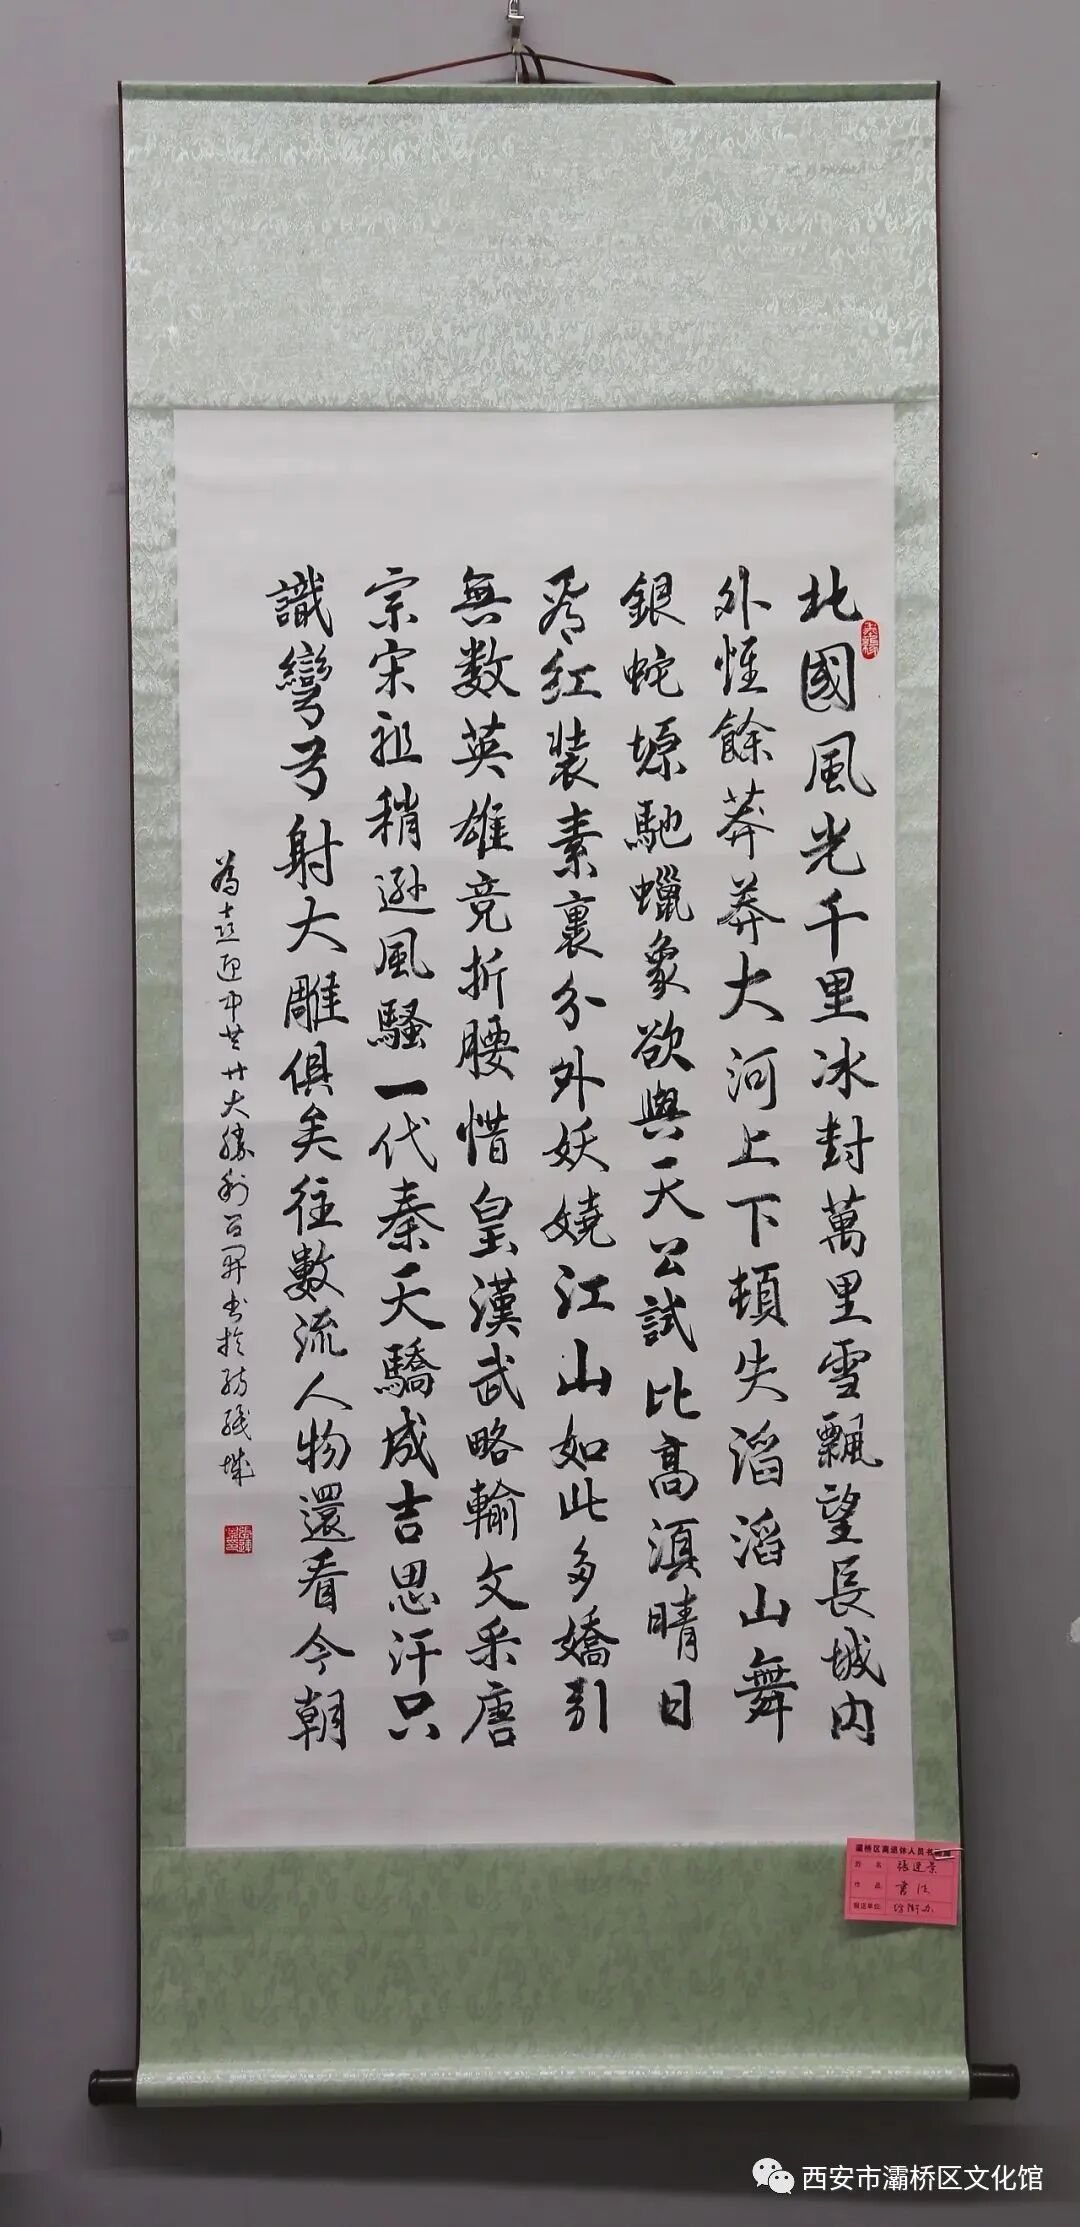 北國風光千里冰封萬里雪飄望長城内
外惟餘莽莽大河上下頓失滔滔山舞
銀蛇塬馳蠟象欲與天公試比高湏晴日
看红装素裹分外妖嬈江山如此多嬌引
無数英雄竞折腰惜皇漢武略輸文采唐
宗宋祖稍遜風騷一代秦天驕成吉思汗只
識彎弓射大雕俱矣往數流人物還看今朝
為喜迎中共廿大勝利召開书於紡織城
灞桥区离退休人员书
姓名
作品 書法
报送单位 纺街办
西安市灞桥区文化馆